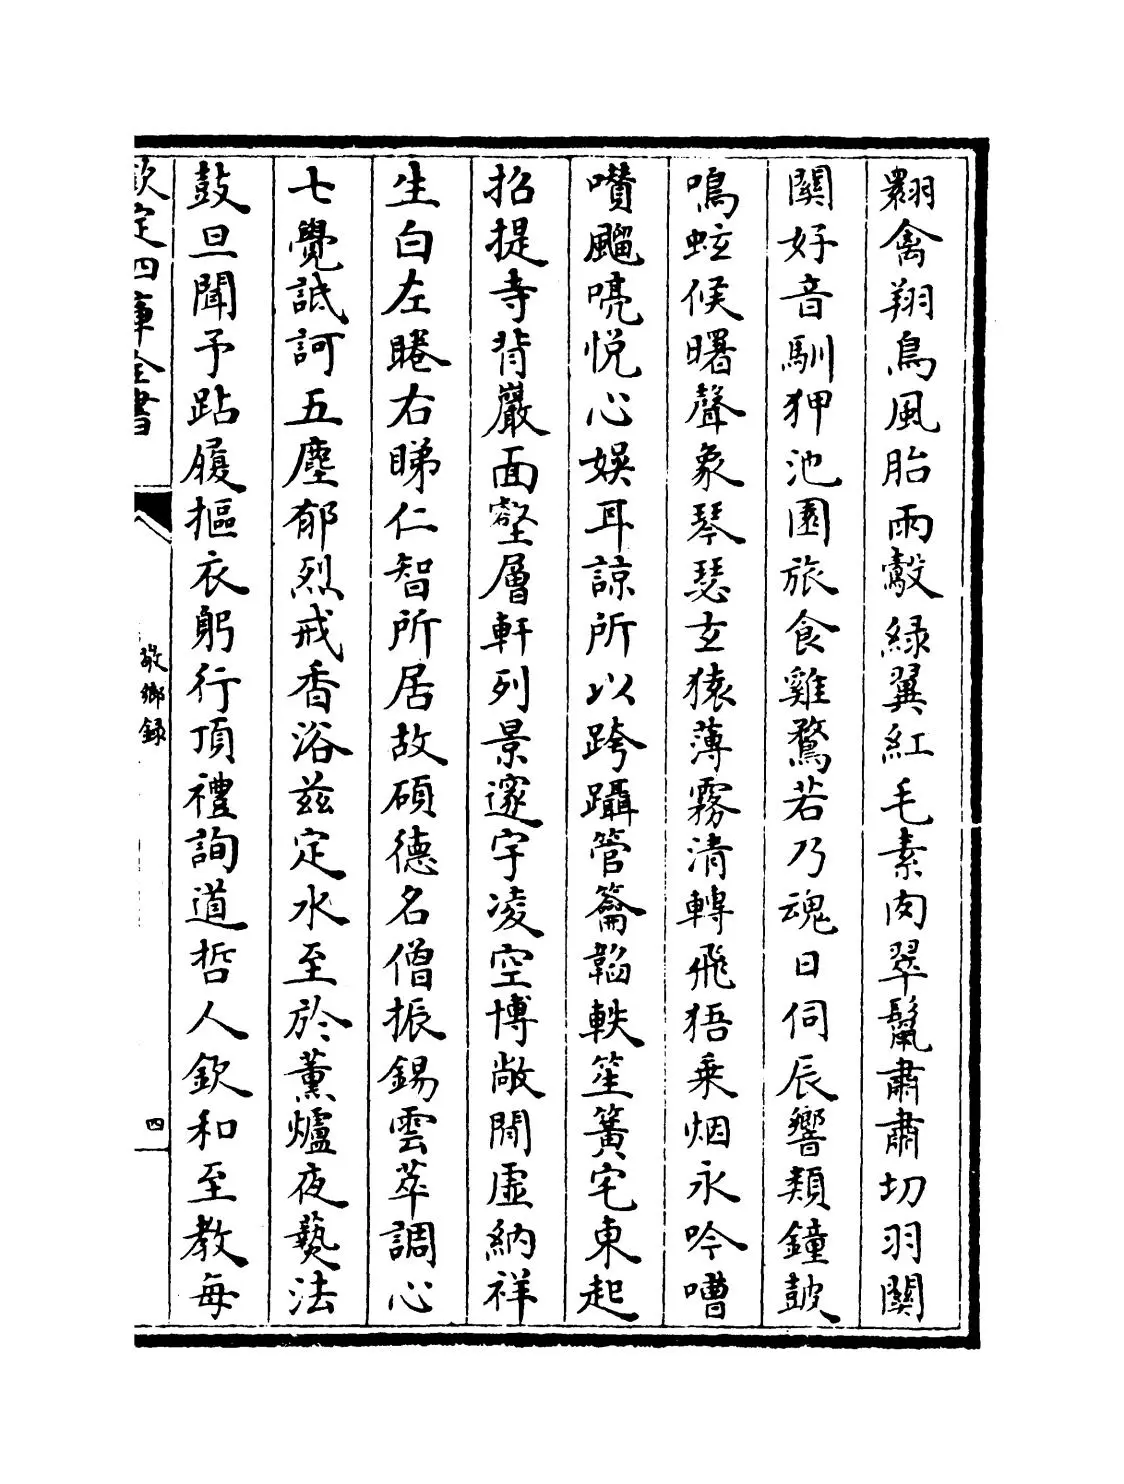 翾禽翔鳥風胎雨鷇綠翼紅毛素肉翠鬛肅肅切羽關
關好音馴狎池園旅食雞鶩若乃魂日伺辰響類鐘鼓
鳴蚿候曙聲象琴瑟玄猿薄霧清轉飛狤乗烟永吟嘈
囋飀喨悦心娛耳諒所以跨躡管籥韜軼笙簧宅東起
招提寺背巖面壑層軒列景邃宇凌空博敞閒虛納祥
生白左睠右睇仁智所居故碩德名僧振錫雲萃調心
七覺詆訶五塵郁烈戒香浴兹定水至於薰爐夜爇法
鼓旦聞予跕履摳衣躬行頂禮詢道哲人欽和至教每
欽定四庫全書
敬鄉録
四